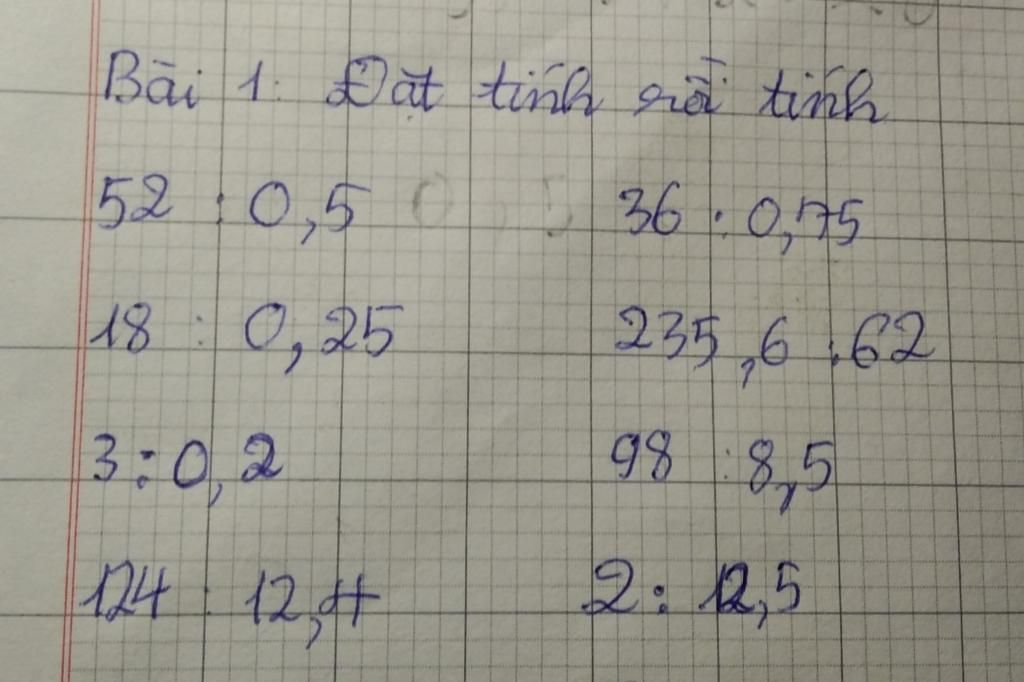 Bài 1: Đặt tính rồi tính
52 : 0,5 36 : 0,75
18 : 0,25 235,6 : 62
3 : 0,2 98 : 8,5
124 : 12,4 2 : 12,5